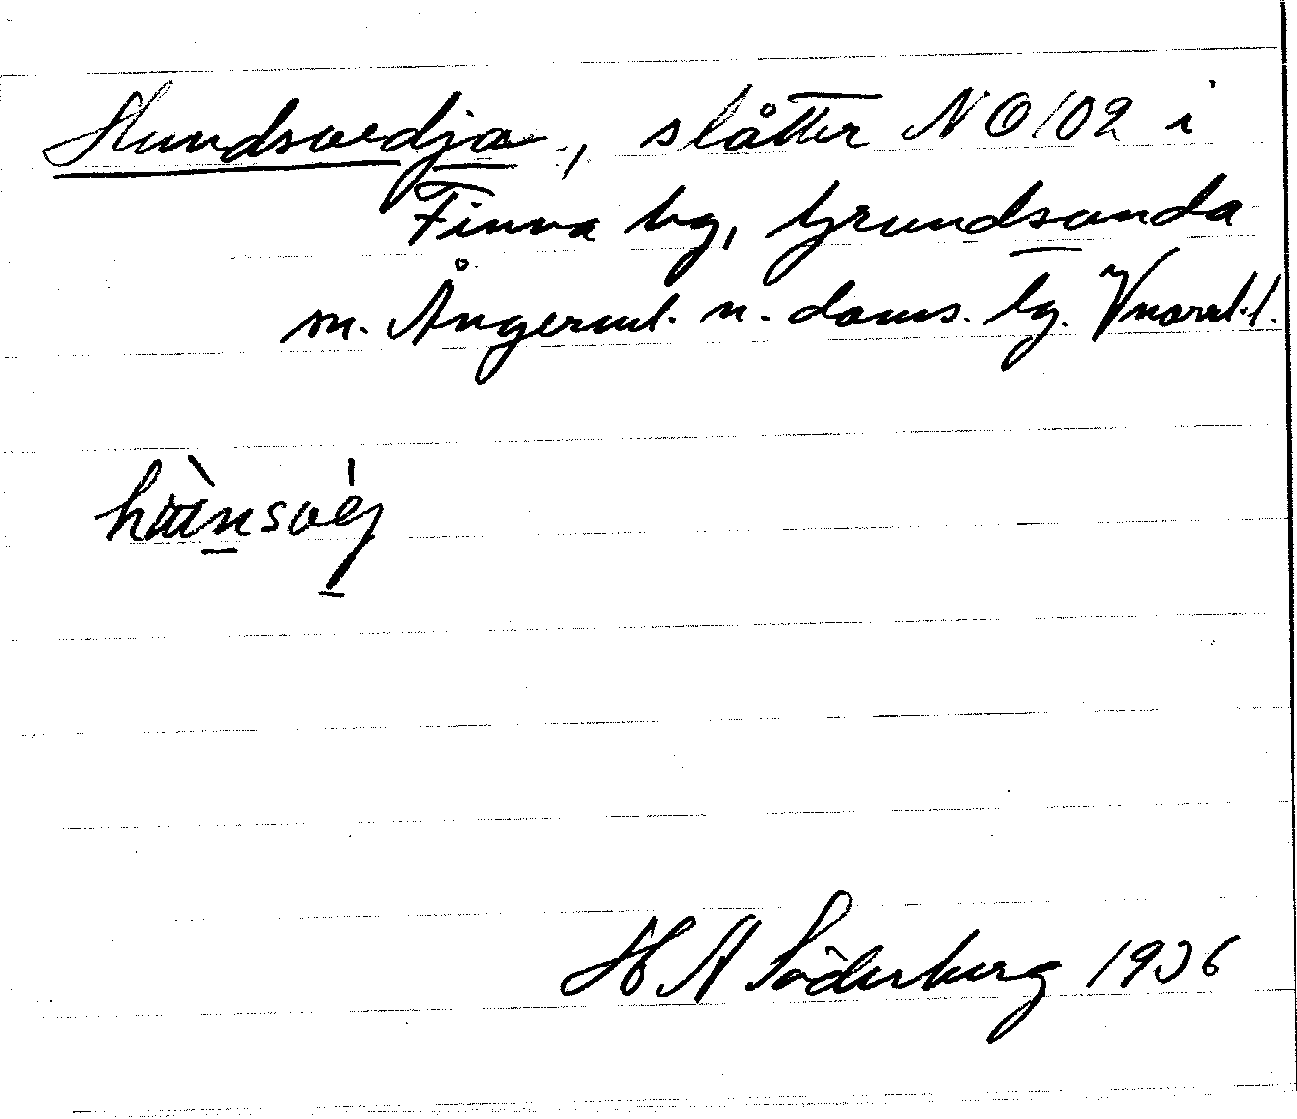 Hundsvedja, slåtter NO/02 i
Finna by, Grundsunda
sn. Ångerml. n. doms. lg. Vnorrl. l.
H A Söderberg 1936